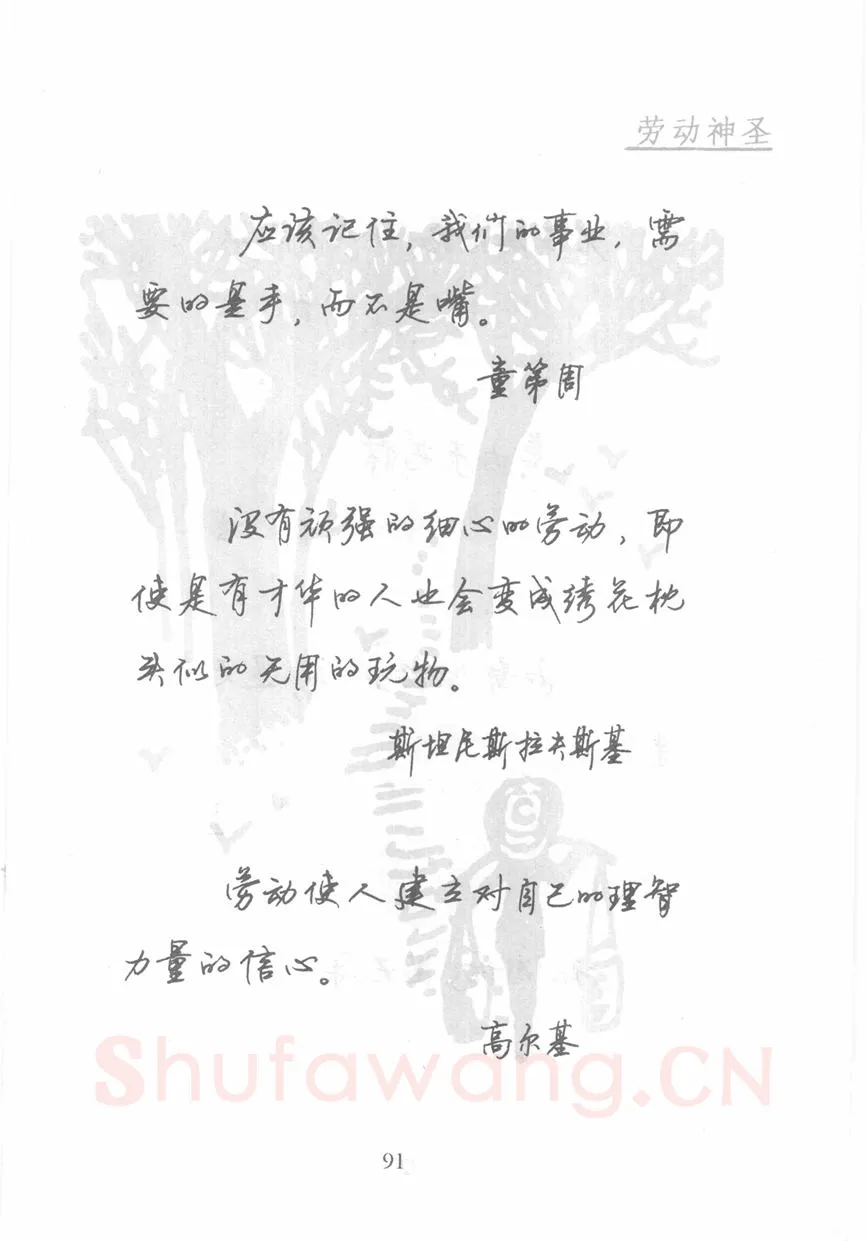 劳动神圣
应该记住，我们的事业，需
要的是手，而不是嘴。
童第周
没有顽强的细心的劳动，即
使是有才华的人也会变成绣花枕
头似的无用的玩物。
斯坦尼斯拉夫斯基
劳动使人建立对自己的理智
力量的信心。
高尔基
Shufawang.CN
91